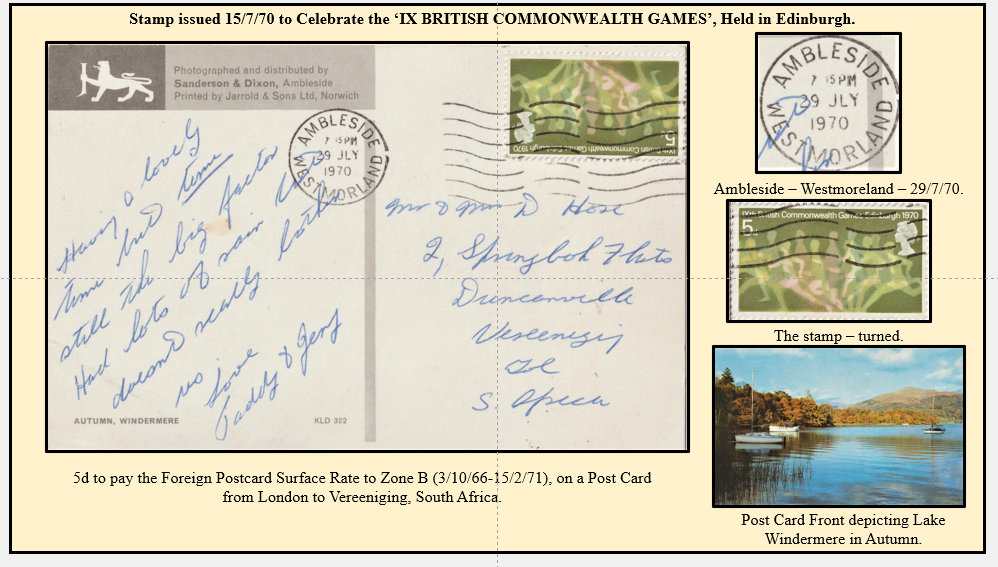 Stamp issued 15/7/70 to Celebrate the ‘IX BRITISH COMMONWEALTH GAMES’, Held in Edinburgh.
Photographed and distributed by
Sanderson & Dixon, Ambleside
Printed by Jarrold & Sons Ltd, Norwich
AMBLESIDE
7 15 PM
29 JLY
1970
WESTMORLAND
IXth British Commonwealth Games Edinburgh 1970
5d
Having a lovely
time but time
still the big factor
Had lots of rain but
doesn't really bother
us
Love
Paddy & Gerry
Mr & Mrs D Hose
2, Springbok Flats
Duncanville
Vereeniging
S. Africa
AUTUMN, WINDERMERE
KLD 322
5d to pay the Foreign Postcard Surface Rate to Zone B (3/10/66-15/2/71), on a Post Card
from London to Vereeniging, South Africa.
AMBLESIDE
7 15 PM
29 JLY
1970
WESTMORLAND
Ambleside – Westmoreland – 29/7/70.
IXth British Commonwealth Games Edinburgh 1970
5d
The stamp – turned.
Post Card Front depicting Lake
Windermere in Autumn.